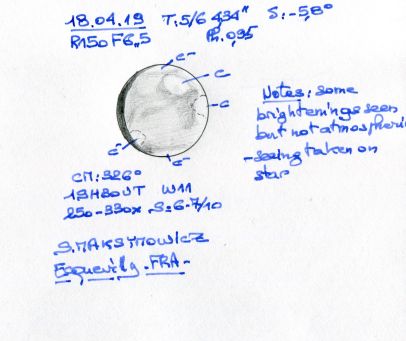 18.04.19 T:5/6 4,34" S:-5,8°
R150 F6,5 Ph. 0,95
C-
C
C
C-
C-
Notes: some
brightenings seen
but not atmospheric
-seeing taken on
star
CM:326°
19H30UT W11
250-330x S:6-7/10
S.MAKSYMOWICZ
Ecquevilly.FRA-